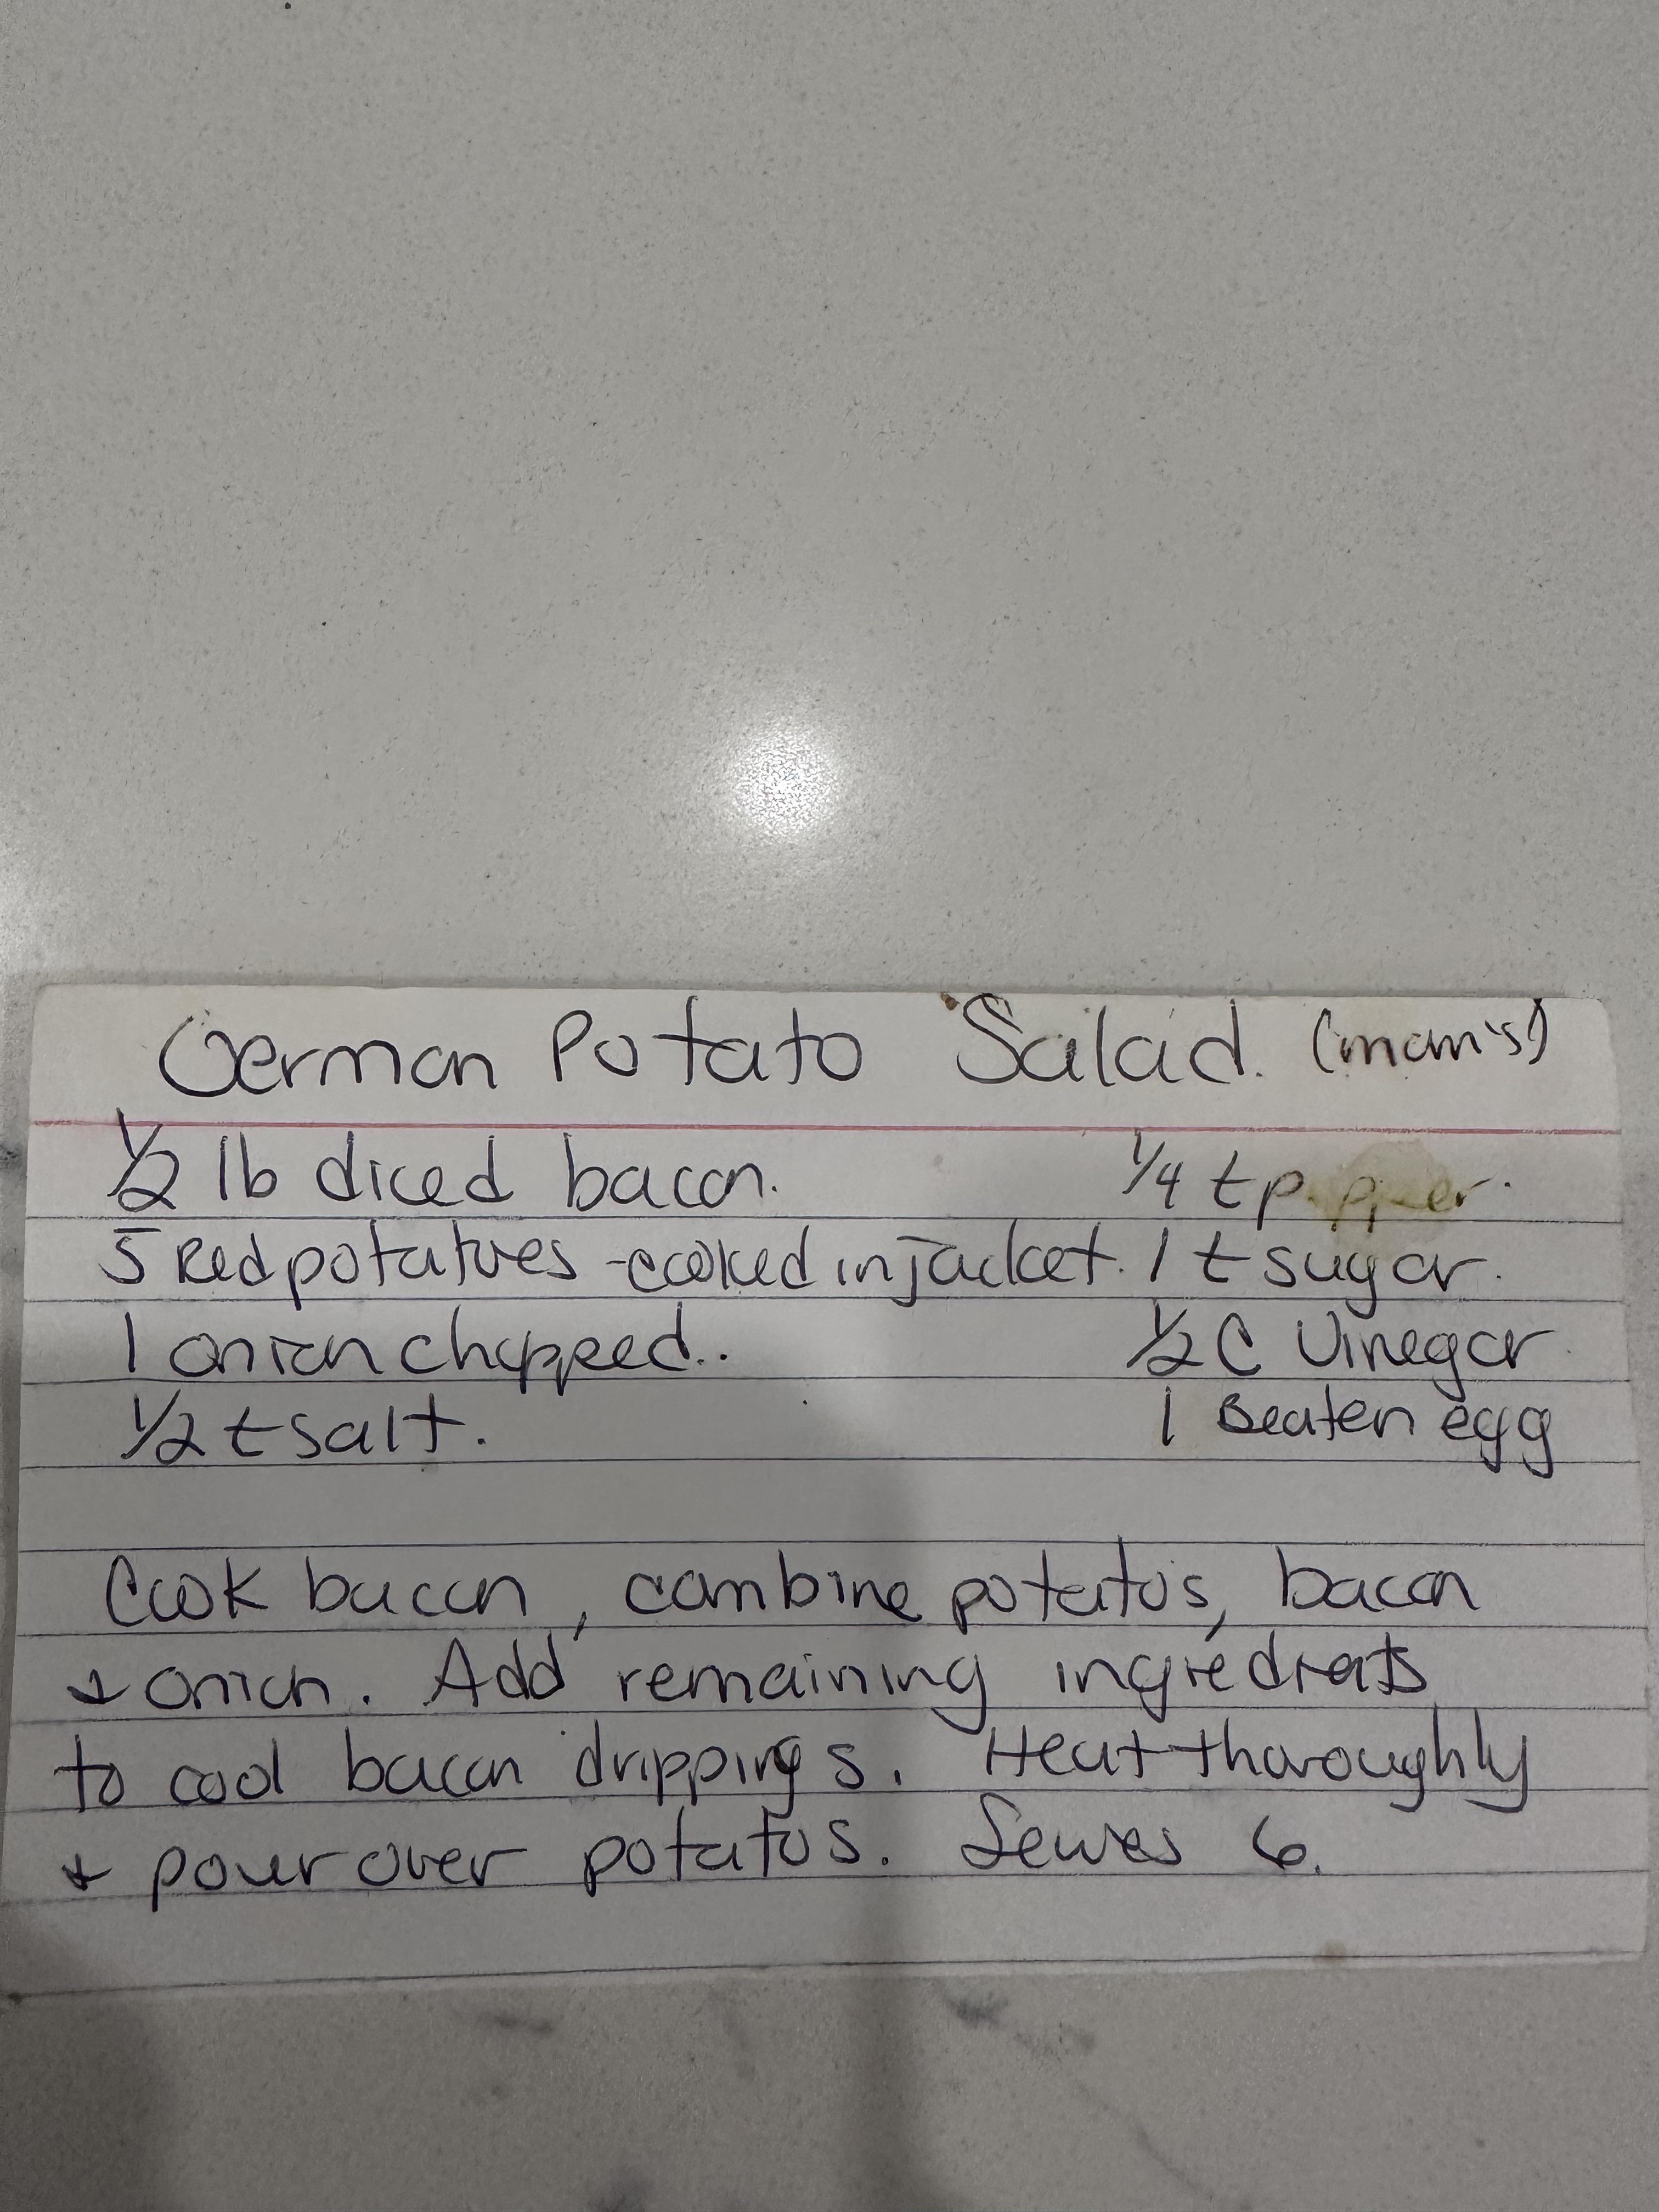 German Potato Salad. (mom's)
1/2 lb diced bacon. 1/4 t pepper.
5 Red potatoes - cooked in jacket. 1 t sugar.
1 onion chopped.. 1/2 C Vinegar
1/2 t salt. 1 Beaten egg
Cook bacon, combine potatos, bacon
& onion. Add remaining ingredients
to cool bacon drippings. Heat thoroughly
& pour over potatos. Serves 6.